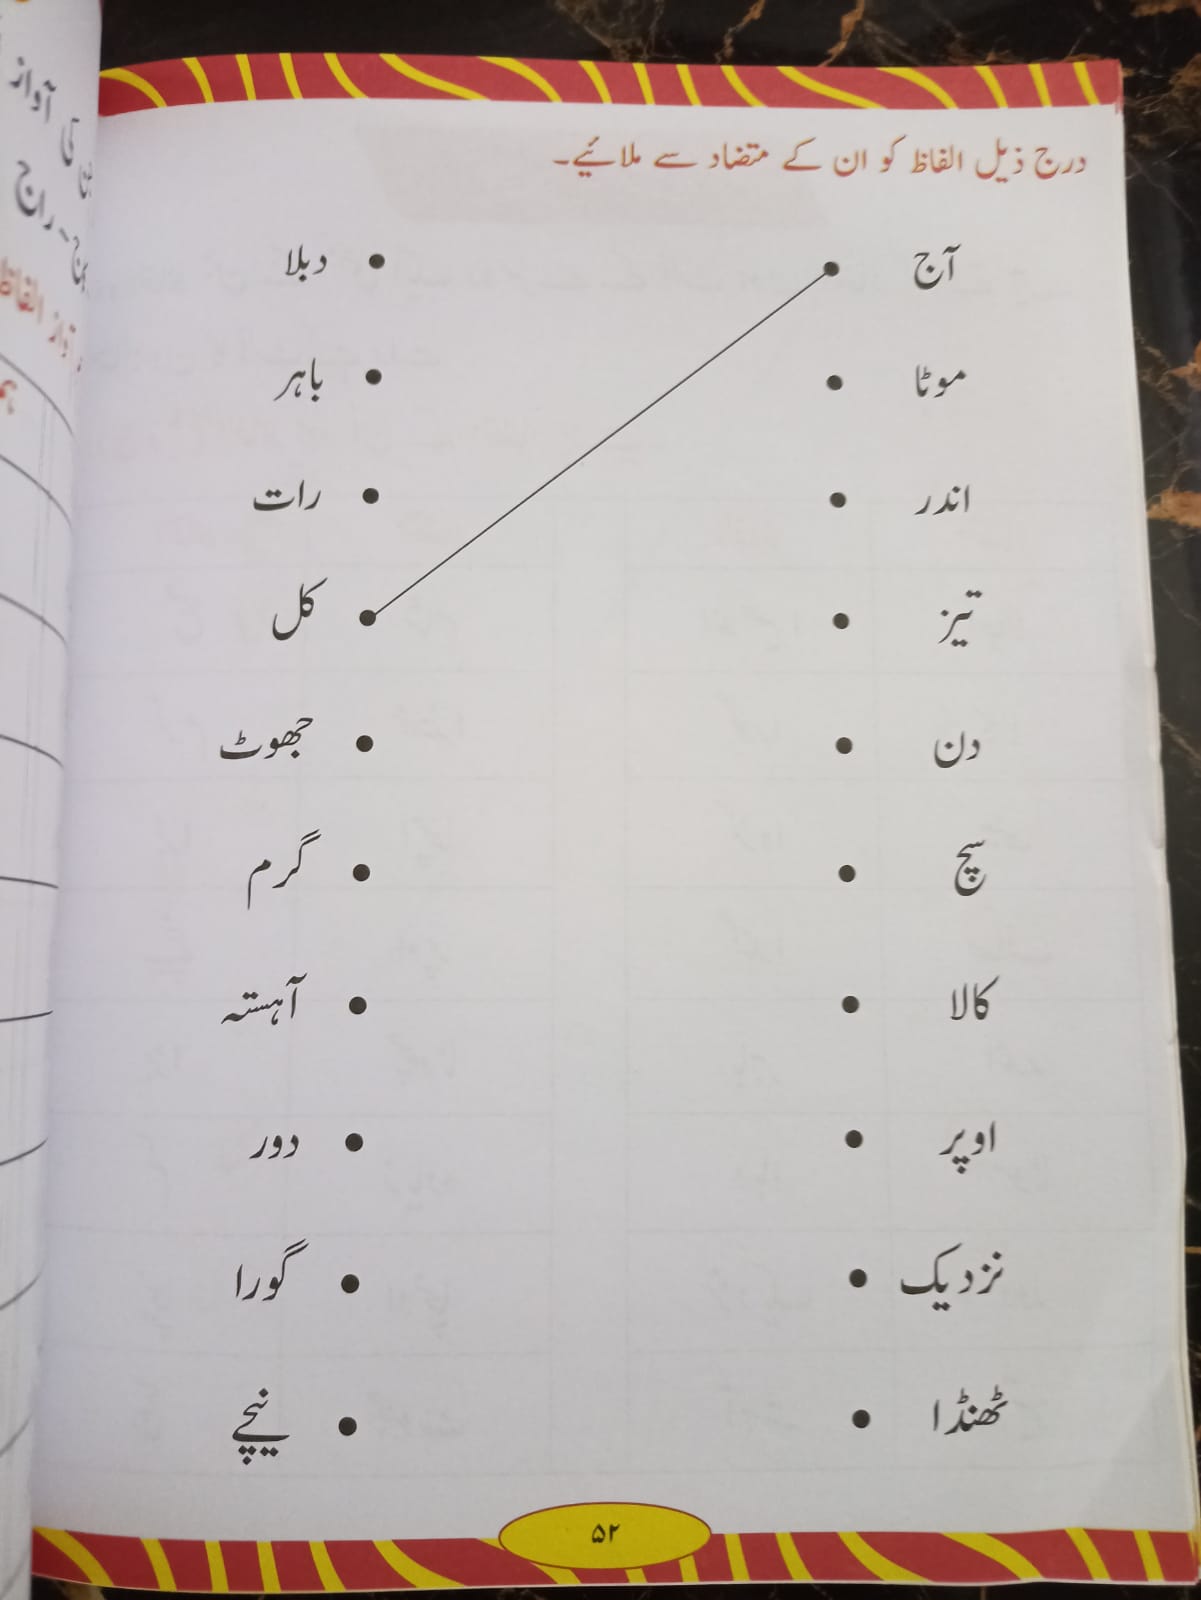 درج ذیل الفاظ کو ان کے متضاد سے ملائیے۔
آج دبلا
موٹا باہر
اندر رات
تیز کل
دن جھوٹ
سچ گرم
کالا آہستہ
اوپر دور
نزدیک گورا
ٹھنڈا نیچے
۵۲
کی آواز
راج
آواز الفاظ